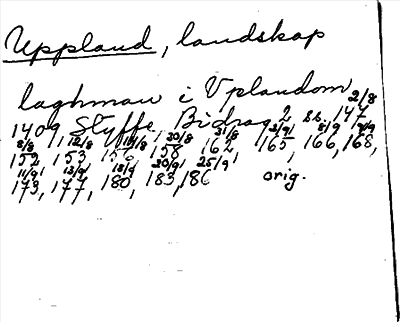 Uppland, landskap
laghman i Vplandom
2/8
1409, Styffe, Bidrag 2 s. 147,
8/8 12/8 14/8 20/8 31/8 3/9 8/9 9/9
152, 153, 156, 158, 162, 165, 166, 168,
11/9 13/9 18/9 20/9 25/9
173, 177, 180, 183, 186 orig.